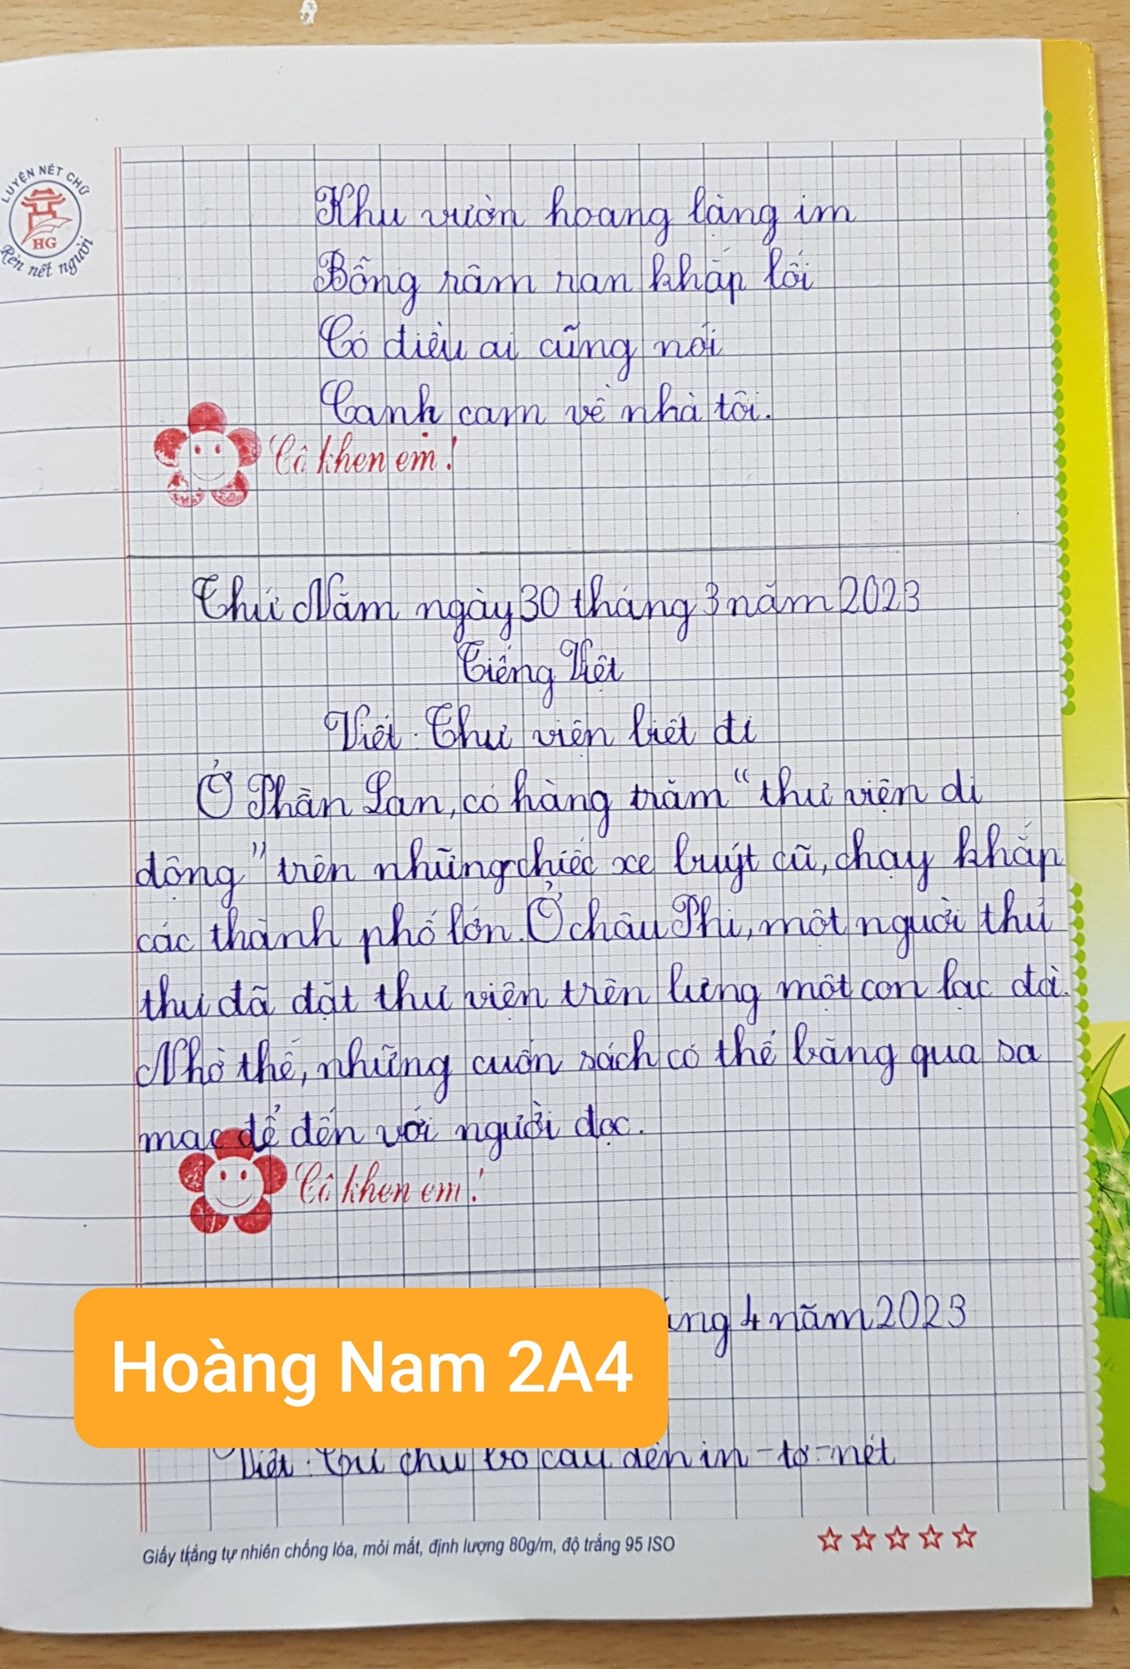 LUYỆN NÉT CHỮ
HG
Rèn nết người
Khu vườn hoang lặng im
Bỗng râm ran khắp lối
Có điều ai cũng nói
Cánh cam về nhà tôi.
Cô khen em!
Thứ Năm ngày 30 tháng 3 năm 2023
Tiếng Việt
Viết: Thư viện biết đi
Ở Phần Lan, có hàng trăm "thư viện di
động" trên những chiếc xe buýt cũ, chạy khắp
các thành phố lớn. Ở châu Phi, một người thủ
thư đã đặt thư viện trên lưng một con lạc đà.
Nhờ thế, những cuốn sách có thể băng qua sa
mạc để đến với người đọc.
Cô khen em!
áng 4 năm 2023
Hoàng Nam 2A4
Viết: Từ chú bồ câu đến in-tơ-nét
Giấy trắng tự nhiên chống lóa, mỏi mắt, định lượng 80g/m, độ trắng 95 ISO